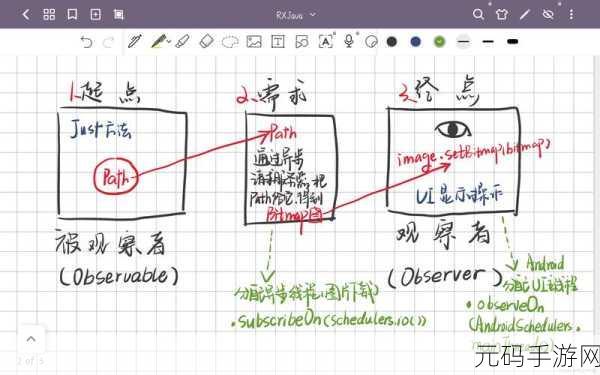 RXJava
1.起点
2.需求
3.终点
Just方法
Path
Path
通过异步
请求服务器,把
Path给它,得到
Bitmap图
image.setBitmap(bitmap)
UI显示展示
被观察者
(Observable)
观察者
(Observer)
分配异步线程(图片下载)
.subscribeOn(Schedulers.io())
Android
分配UI主线程
.observeOn
(AndroidSchedulers.
mainThread())
2 of 5
元码手游网